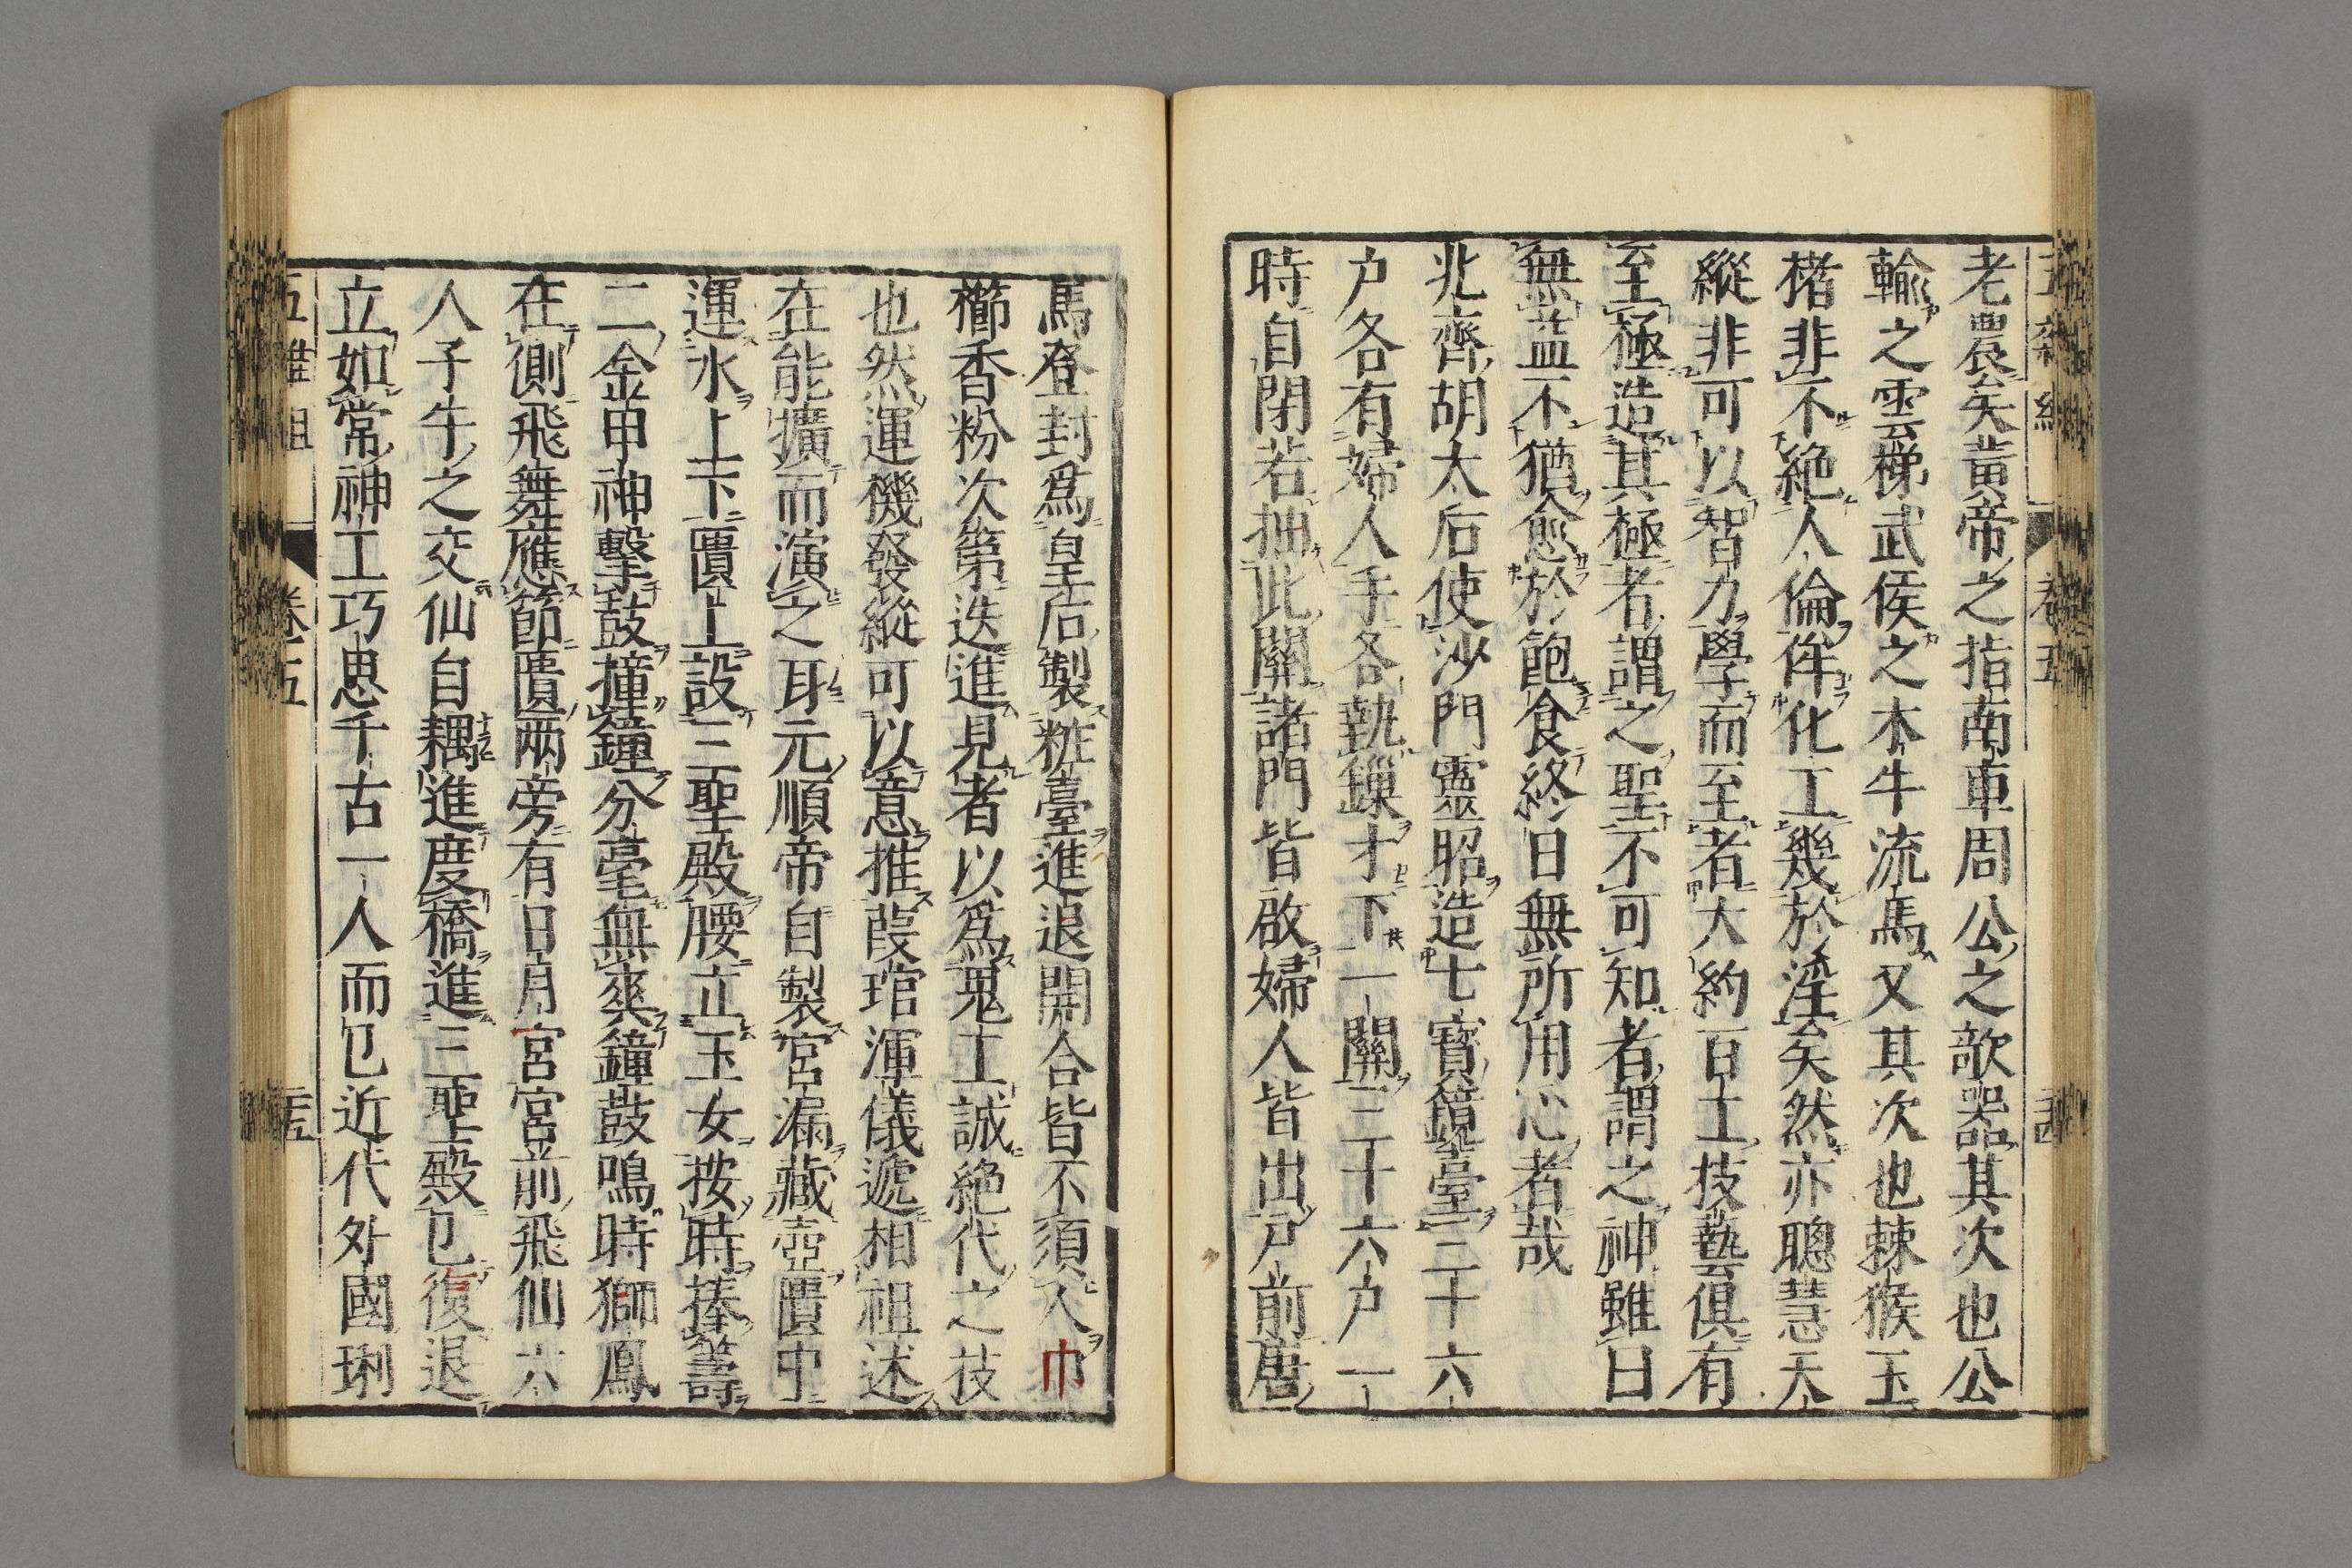 老農矣黃帝之指南車周公之欹器其次也公
輸之雲梯武侯之木牛流馬又其次也棘猴玉
楮非不絶人倫侔化工幾於淫矣然亦聰慧天
縱非可以智力學而至者大約百工技藝俱有
至極造其極者謂之聖不可知者謂之神雖曰
無益不猶愈於飽食終日無所用心者哉
北齊胡太后使沙門靈昭造七寶鏡臺三十六
户各有婦人手各執鏁才下一關三十六户一
時自閉若抽此關諸門皆啟婦人皆出户前唐
馬登封爲皇后製粧臺進退開合皆不須人巾
櫛香粉次第迭進見者以爲鬼工誠絶代之技
也然運機發縱可以意推葭琯渾儀遞相祖述
在能擴而演之耳元順帝自製宮漏藏壺匱中
運水上下匱上設三聖殿腰立玉女按時捧籌
二金甲神擊鼓撞鐘分毫無爽鐘鼓鳴時獅鳳
在側飛舞應節匱兩旁有日月宮宮前飛仙六
人子午之交仙自耦進度橋進三聖殿已復退
立如常神工巧思千古一人而已近代外國琍
五雜組 卷五